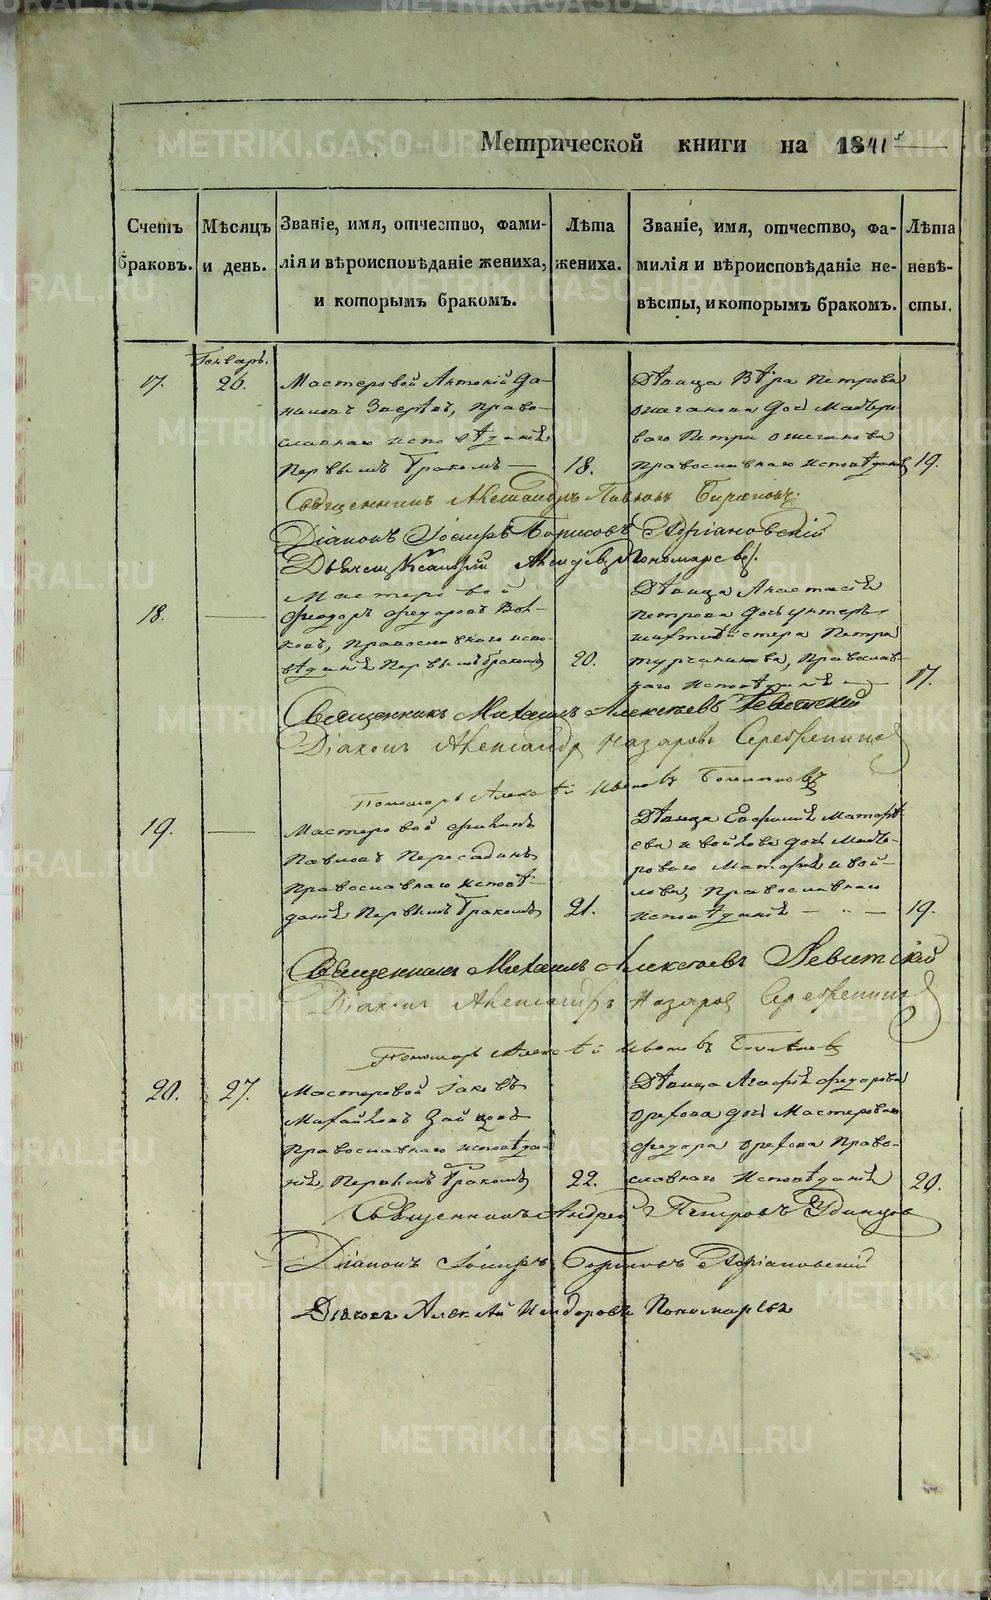 Метрической книги на 1841 г
Счетъ браковъ.
Мѣсяцъ и день.
Званіе, имя, отчество, фами-
лія и вѣроисповѣданіе жениха,
и которымъ бракомъ.
Лѣта жениха.
Званіе, имя, отчество, фа-
милія и вѣроисповѣданіе не-
вѣсты, и которымъ бракомъ.
Лѣта невѣ-
сты.
17.
Генварь.
20.
Мастеровой Антоній Да-
ниловъ Звѣревъ, Право-
славнаго исповѣданія
Первымъ бракомъ
18.
Дѣвица Вѣра Петрова
дочь Мастеро-
ваго Петра
Православнаго Исповѣданія
19.
Священникъ Александръ Павловъ
Діаконъ Іосифъ Борисовъ Адріановскій
Дьячекъ Пономаревъ.
18.
Мастеровой
Федоръ Федоровъ Вол-
ковъ, Православнаго испо-
вѣданія Первымъ бракомъ
20.
Дѣвица Анастасія
Петрова дочь унтеръ
шихтмейстера Петра
Турчанинова, Православ-
наго Исповѣданія
17.
Священникъ Михаилъ Алексѣевъ Левитскій
Діаконъ Александръ Назаровъ Серебренниковъ
Пономарь Алексѣй Ивановъ
19.
Мастеровой Филипъ
Павловъ Пересадинъ
Православнаго исповѣ-
данія Первымъ бракомъ
21.
Дѣвица Евфимія Матвѣ-
ева Ивойлова дочь Масте-
роваго Матвѣя Ивой-
лова, Православнаго
исповѣданія
19.
Священникъ Михаилъ Алексѣевъ Левитскій
Діаконъ Александръ Назаровъ Серебренниковъ
Пономарь Алексѣй Ивановъ
20.
27.
Мастеровой Іаковъ
Михайловъ Зайцовъ
Православнаго исповѣда-
нія, Первымъ бракомъ
22.
Дѣвица Агафія Федорова
Орехова дочь Мастероваго
Федора Орехова Право-
славнаго Исповѣданія
20.
Священникъ Андрей Петровъ Удинцовъ
Діаконъ Іосифъ Борисовъ Адріановскій
Дьячекъ Алексѣй Исидоровъ Пономаревъ
METRIKI.GASO-URAL.RU